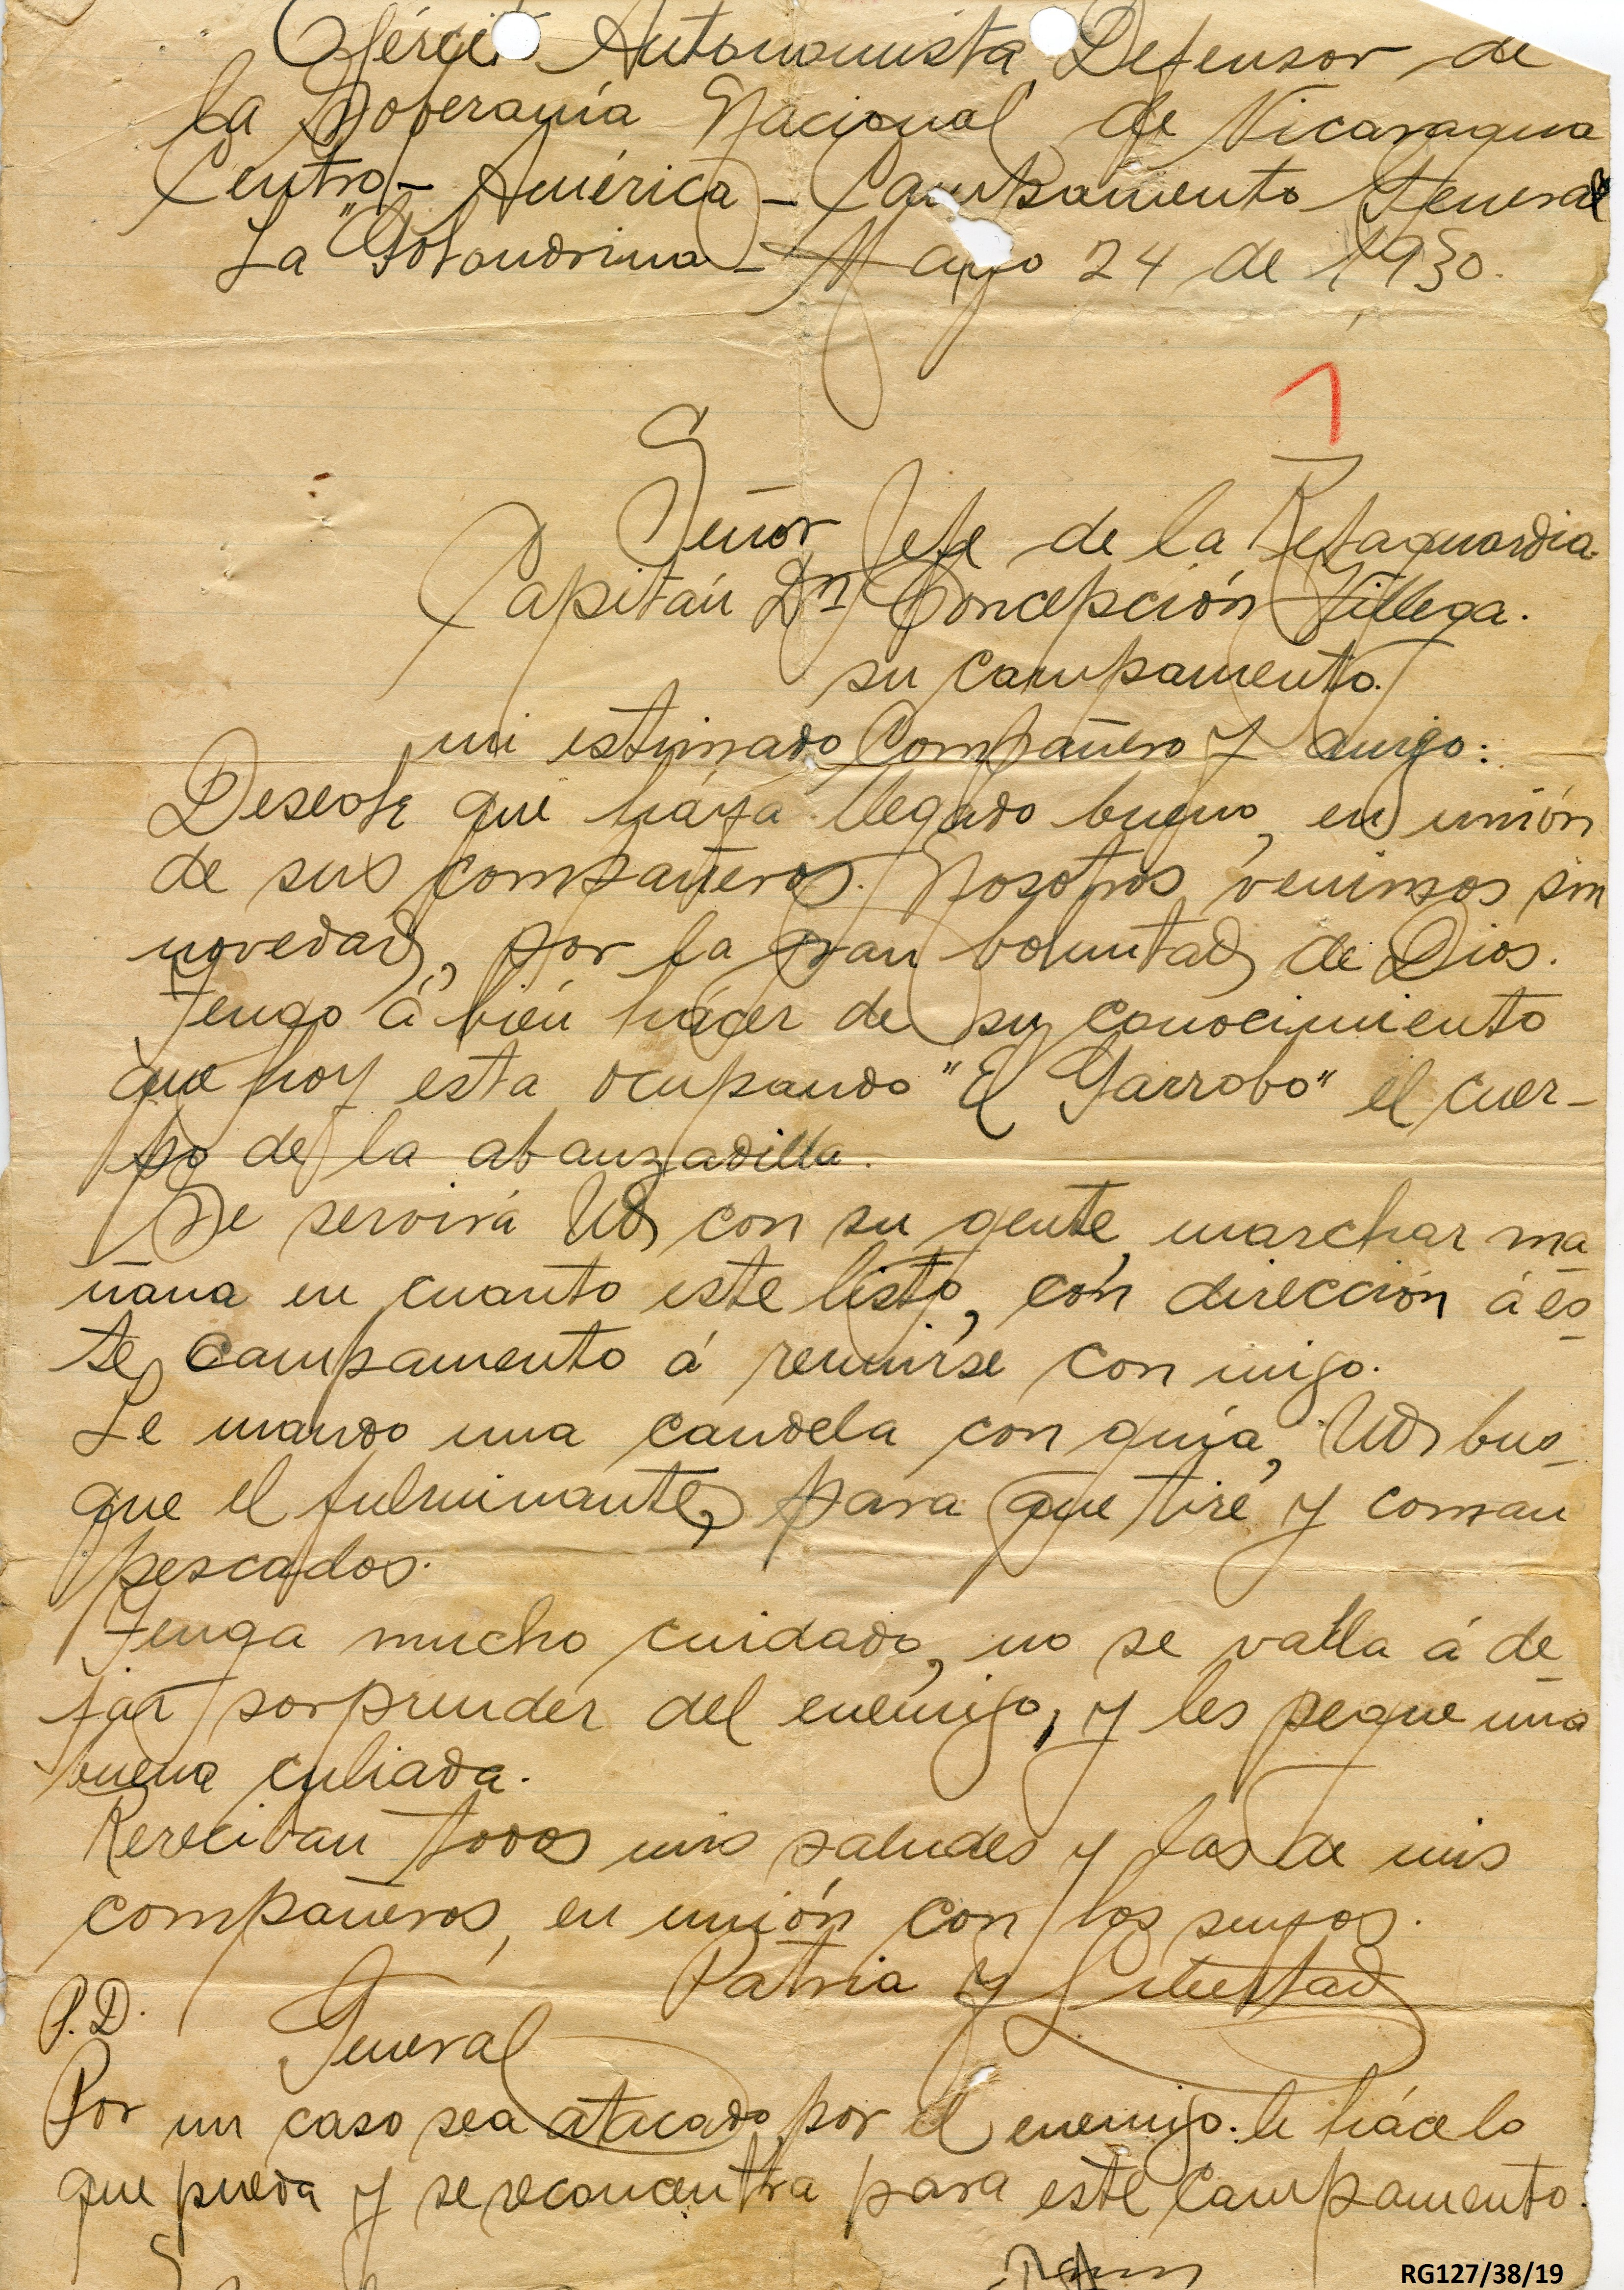 Ejército Autonomista Defensor de
la Soberanía Nacional de Nicaragua
Centro-América - Campamento General
La "Golondrina - Mayo 24 de 1930.
1
Señor Jefe de la Retaguardia.
Capitán Dn Concepción Villega.
su campamento.
mi estimado Compañero y amigo:
Deseole que háya llegado bueno, en unión
de sus compañeros. Nosotros venimos sin
novedad, por la gran voluntad de Dios.
Tengo á bién hácer de su conocimiento
que hoy esta ocupando "El Garrobo" el cuer-
po de la abanzadilla.
Se servirá Ud con su gente, marchar ma-
ñana en cuanto este listo, cón dirección á es-
te campamento á reunirse con migo.
Le mando una candela con guía, Ud bus-
que el fulminante, para que tire y coman
pescados.
Tenga mucho cuidado, no se valla á de-
jar sorprender del enemigo, y les pegue una
buena culiada.
Rereciban todos mis saludes y los de mis
compañeros, en unión con los suyos.
Patria y Libertad
P.D. General
Por un caso sea atacado por el enemigo. le háce lo
que pueda y se reconcentra para este Campamento.
RG127/38/19